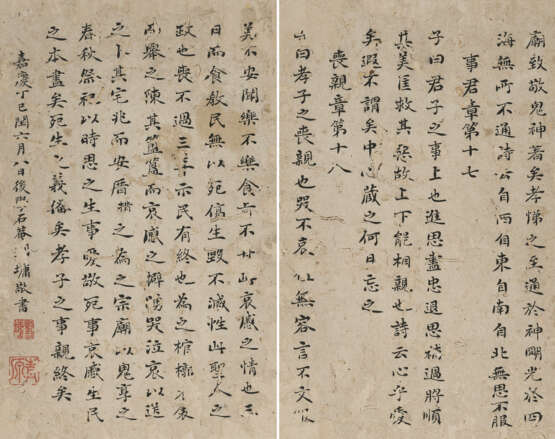 廟致敬鬼神著矣孝悌之至通於神明光於四
海無所不通詩云自西自東自南自北無思不服
事君章第十七
子曰君子之事上也進思盡忠退思補過將順
其美匡救其惡故上下能相親也詩云心乎愛
矣遐不謂矣中心藏之何日忘之
喪親章第十八
子曰孝子之喪親也哭不哀礼無容言不文服
美不安聞樂不樂食旨不甘此哀慼之情也三
日而食教民無以死傷生毀不滅性此聖人之
政也喪不過三年示民有終也為之棺槨衣衾
而舉之陳其簠簋而哀慼之擗踊哭泣哀以送
之卜其宅兆而安厝措之為之宗廟以鬼享之
春秋祭祀以時思之生事愛敬死事哀慼生民
之本盡矣死生之義備矣孝子之事親終矣
嘉慶丁巳閏六月八日後學石菴劉墉敬書